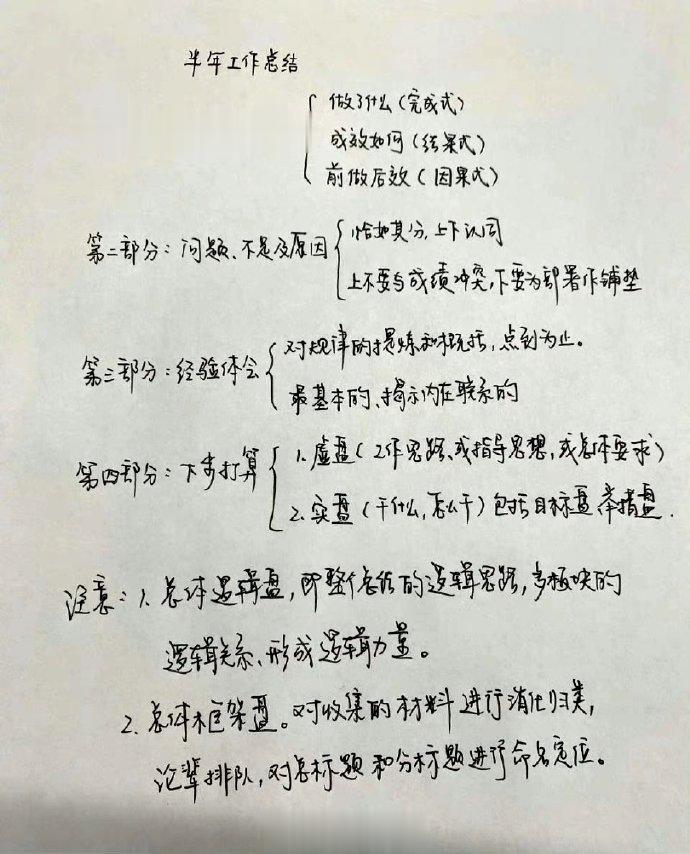 半年工作总结
做了什么（完成式）
成效如何（结果式）
前做后效（因果式）
第二部分：问题、不足及原因
恰如其分，上下认同
上不要与成绩冲突，下要为部署作铺垫
第三部分：经验体会
对规律的提炼和概括，点到为止。
最基本的、揭示内在联系的
第四部分：下步打算
1.虚盘（工作思路、或指导思想，或总体要求）
2.实盘（干什么，怎么干）包括目标盘、举措盘.
注意：1.总体逻辑盘，即整个总结的逻辑思路，多板块的
逻辑关系、形成逻辑力量。
2.总体框架盘。对收集的材料进行消化归类，
论辈排队，对总标题和分标题进行命名定位。